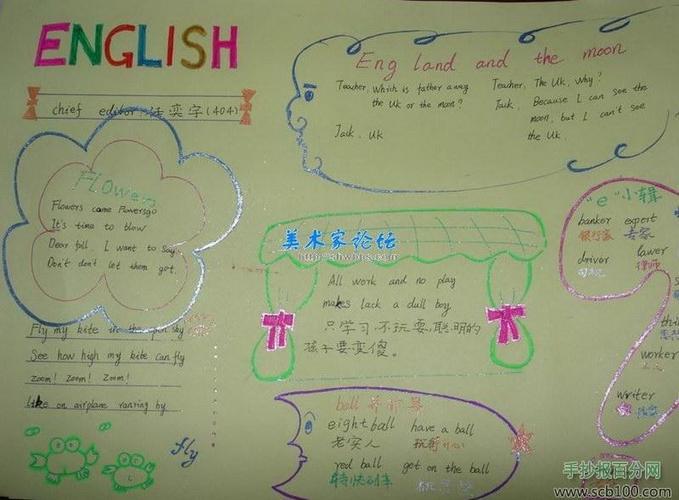 ENGLISH
chief editor (404)
Flowers
Flowers came Flowersgo
It's time to blow
Dear fall, I want to say
Don't don't let them got.
Fly my kite in the sky
See how high my kite can fly
Zoom! Zoom! Zoom!
like on airplane running by
fly
Eng land and the moon
Teacher, which is father away
the UK or the moon?
Jack, UK
Teacher, The UK, Why?
Jack, Because I can see the
moon, but I can't see
the UK.
美术家论坛
All work and no play
makes lack a dull boy
只学习,不玩耍,聪明的
孩子要变傻。
ball
eight ball have a ball
老实人
red ball get on the ball
特快列车
"e"小辑
banker expert
银行家 专家
driver lawer
司机 律师
worker
writer
手抄报百分网
www.scb100.com